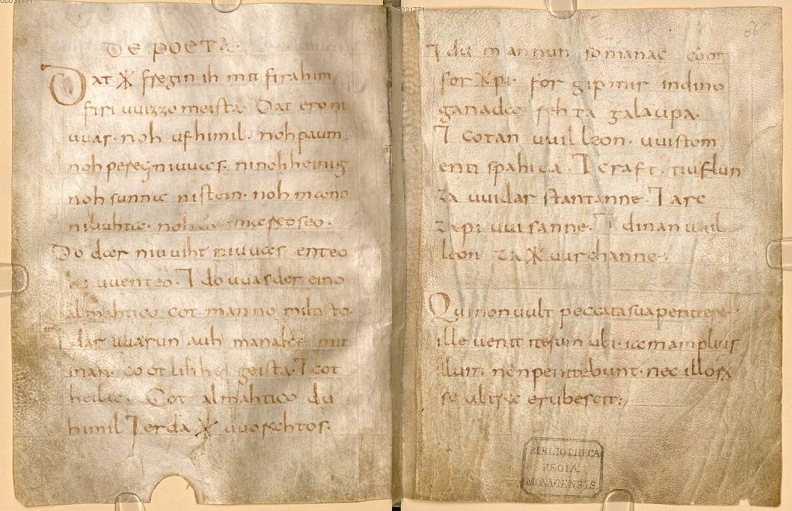 DE POETA·
Dat ᚷ fregin ih mit firahim
firi uuizzo meista· Dat ero ni
uuas· noh ufhimil· noh paum
noh pereg ni uuas· ninohheinig
noh sunna nistein· noh mano
niliuhta· noh der mareo seo·
Do dar niuuiht niuuas enteo
ni uuenteo· ⁊ do uuas der eino
almahtico cot manno miltisto·
⁊ dar uuarun auh manake mit
inan· cootlihhe geista· ⁊ cot
heilac· Cot almahtico du
himil ⁊ erda ᚷ uuorahtos·
⁊ du mannun so manac coot
for ᚷ pi· for gipmir indino
ganada rehta galaupa·
⁊ cotan uuilleon· uuistom
enti spahida· ⁊ craft· tiuflun
za uuidar stantanne· ⁊ arc
zapi uuisanne· ⁊ dinan uuil
leon za ᚷ uurchanne·
Qui non uult peccata sua penitere·
ille uenit iterum ubi iam amplius
illum non penitebunt· nec illorꝝ
se ultra erubescit;
BIBLIOTHECA
REGIA
MONACENSIS